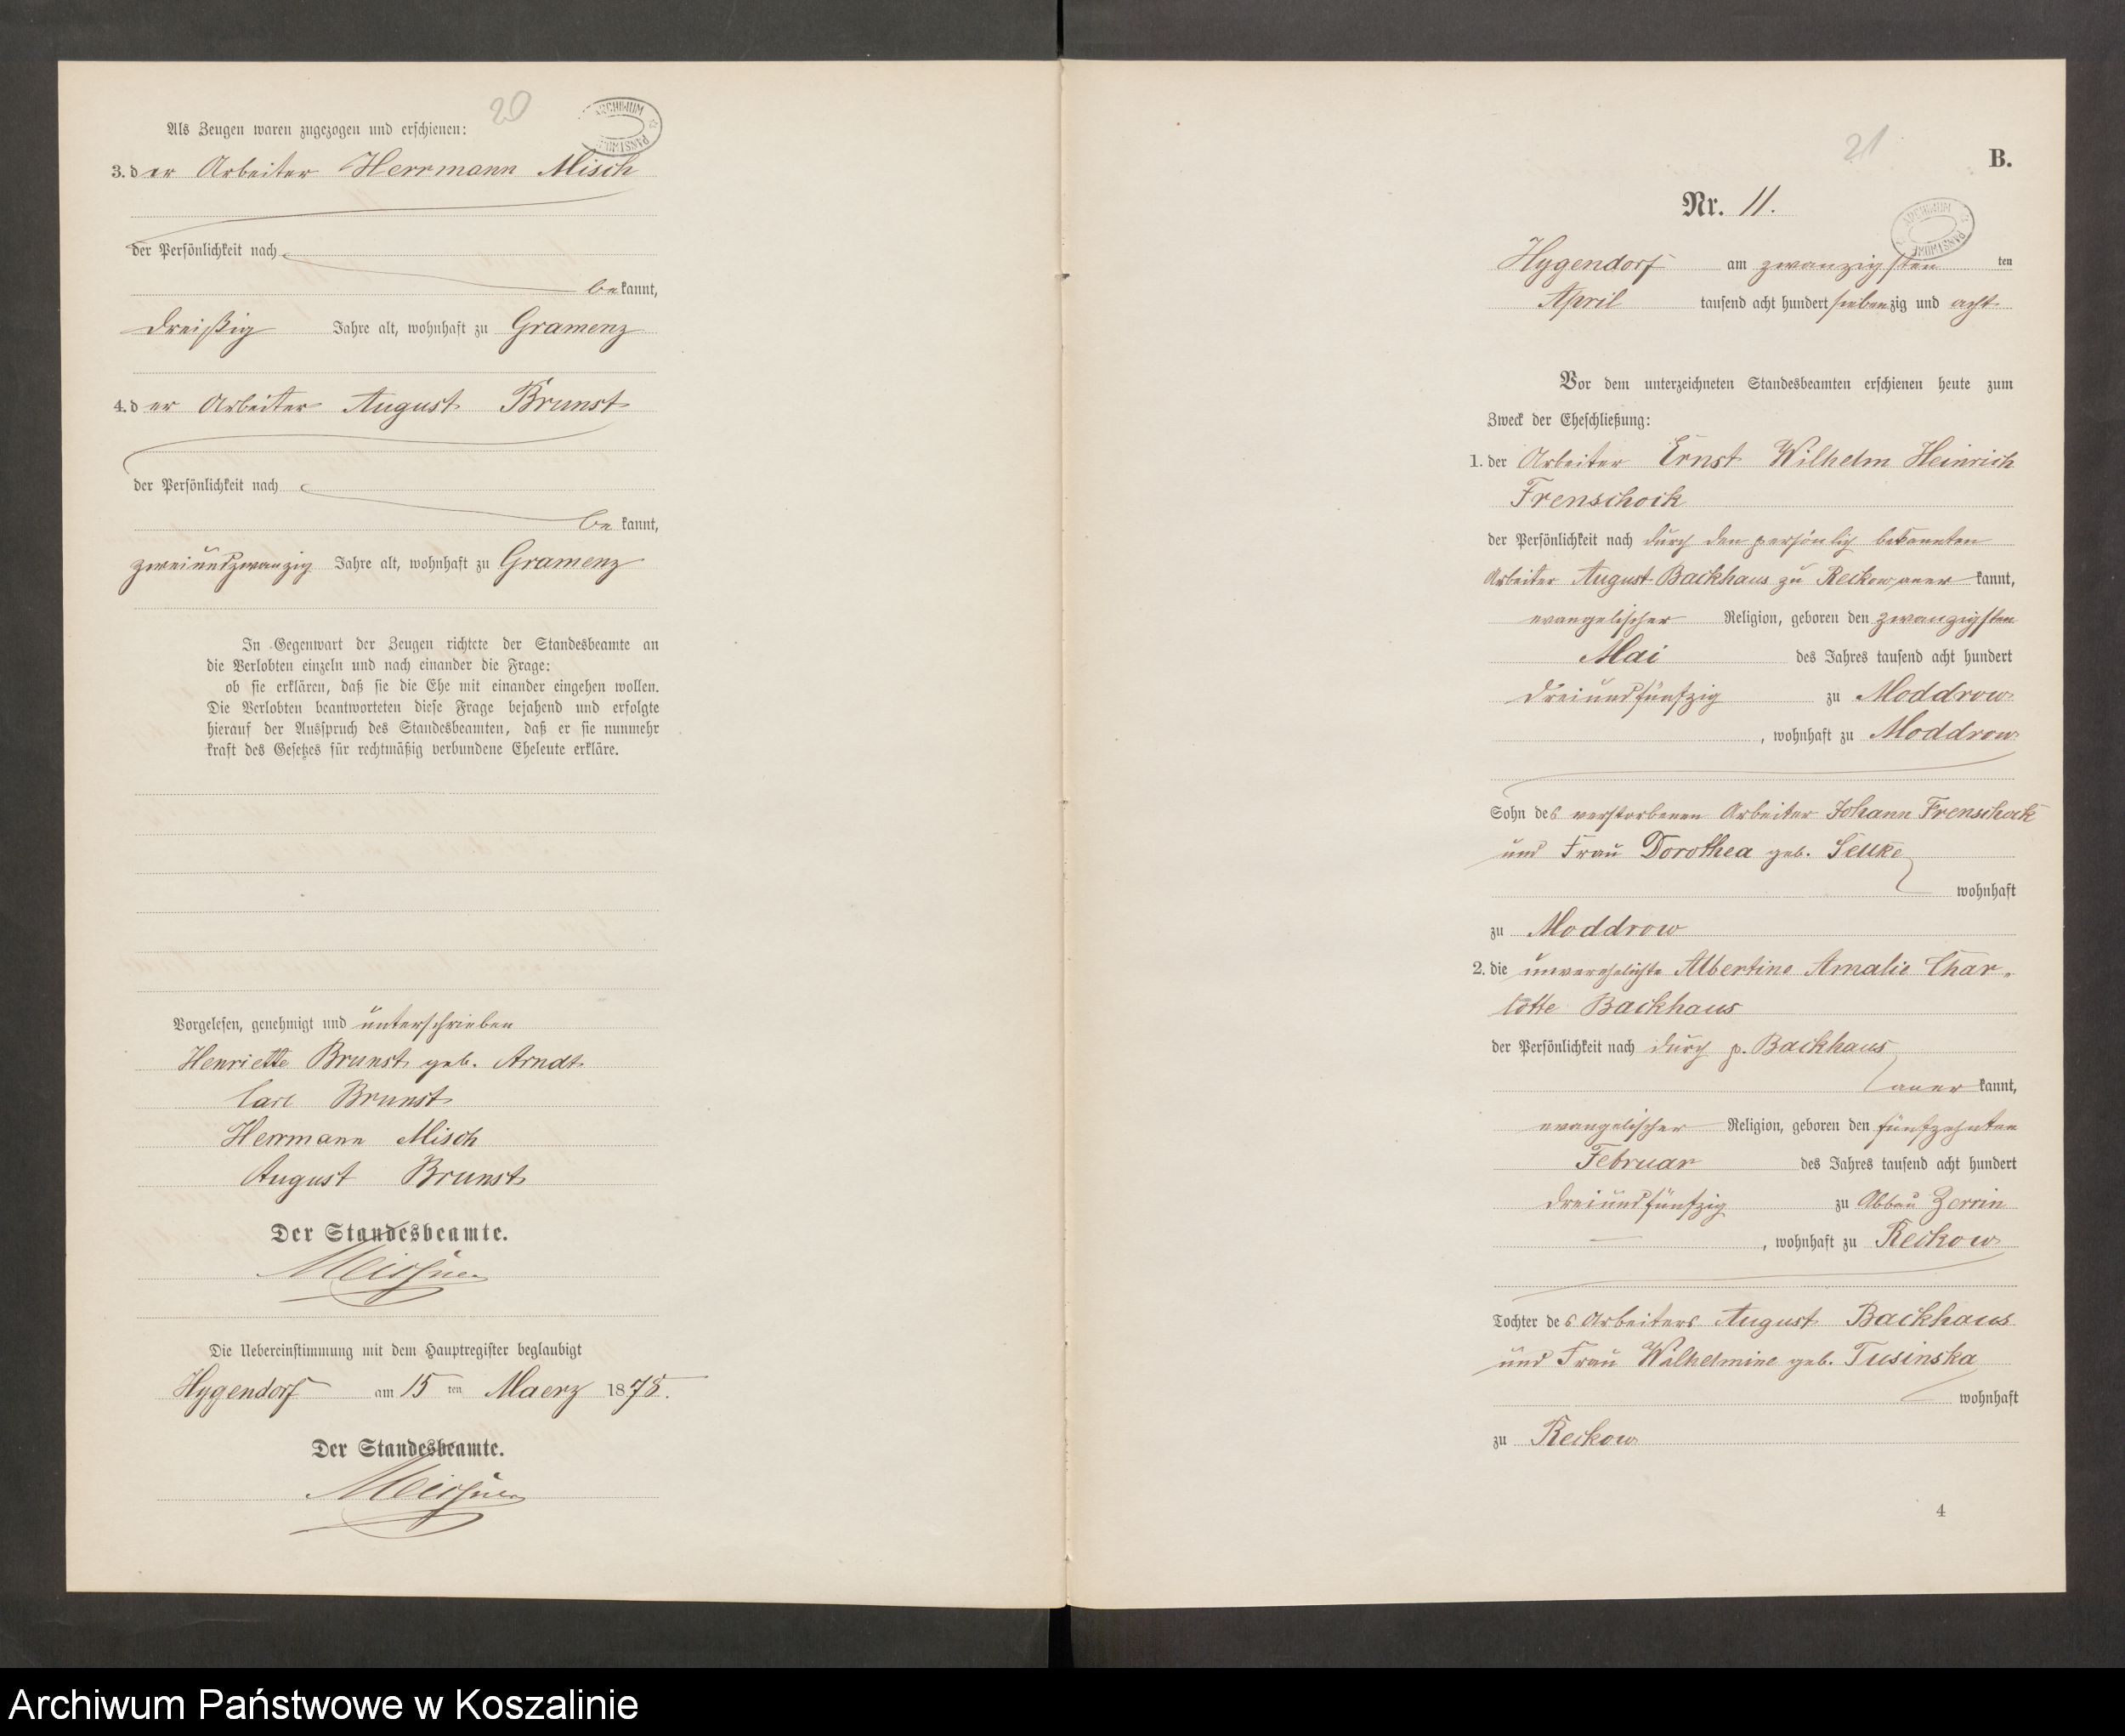 20
Als Zeugen waren zugezogen und erschienen:
3. der Arbeiter Herrmann Misch
der Persönlichkeit nach
bekannt,
dreißig Jahre alt, wohnhaft zu Gramenz
4. der Arbeiter August Brunst
der Persönlichkeit nach
bekannt,
zweiundzwanzig Jahre alt, wohnhaft zu Gramenz
In Gegenwart der Zeugen richtete der Standesbeamte an
die Verlobten einzeln und nach einander die Frage:
ob sie erklären, daß sie die Ehe mit einander eingehen wollen.
Die Verlobten beantworteten diese Frage bejahend und erfolgte
hierauf der Ausspruch des Standesbeamten, daß er sie nunmehr
kraft des Gesetzes für rechtmäßig verbundene Eheleute erkläre.
Vorgelesen, genehmigt und unterschrieben
Henriette Brunst geb. Arndt
Carl Brunst
Herrmann Misch
August Brunst
Der Standesbeamte.
Meissner
Die Uebereinstimmung mit dem Hauptregister beglaubigt
Hygendorf am 15 ten Maerz 1878.
Der Standesbeamte.
Meissner
21
B.
Nr. 11.
Hygendorf am zwanzigsten ten
April tausend acht hundert siebenzig und acht
Vor dem unterzeichneten Standesbeamten erschienen heute zum
Zweck der Eheschließung:
1. der Arbeiter Ernst Wilhelm Heinrich
Frenschock
der Persönlichkeit nach durch den persönlich bekannten
Arbeiter August Backhaus zu Reckow anerkannt,
evangelischer Religion, geboren den zwanzigsten
Mai des Jahres tausend acht hundert
dreiundfünfzig zu Moddrow
, wohnhaft zu Moddrow
Sohn des verstorbenen Arbeiter Johann Frenschock
und Frau Dorothea geb. Selke
wohnhaft
zu Moddrow
2. die unverehelichte Albertine Amalie Char-
lotte Backhaus
der Persönlichkeit nach durch p. Backhaus
anerkannt,
evangelischer Religion, geboren den fünfzehnten
Februar des Jahres tausend acht hundert
dreiundfünfzig zu Abbau Zerrin
, wohnhaft zu Reckow
Tochter des Arbeiters August Backhaus
und Frau Wilhelmine geb. Tusinska
wohnhaft
zu Reckow
4
Archiwum Państwowe w Koszalinie